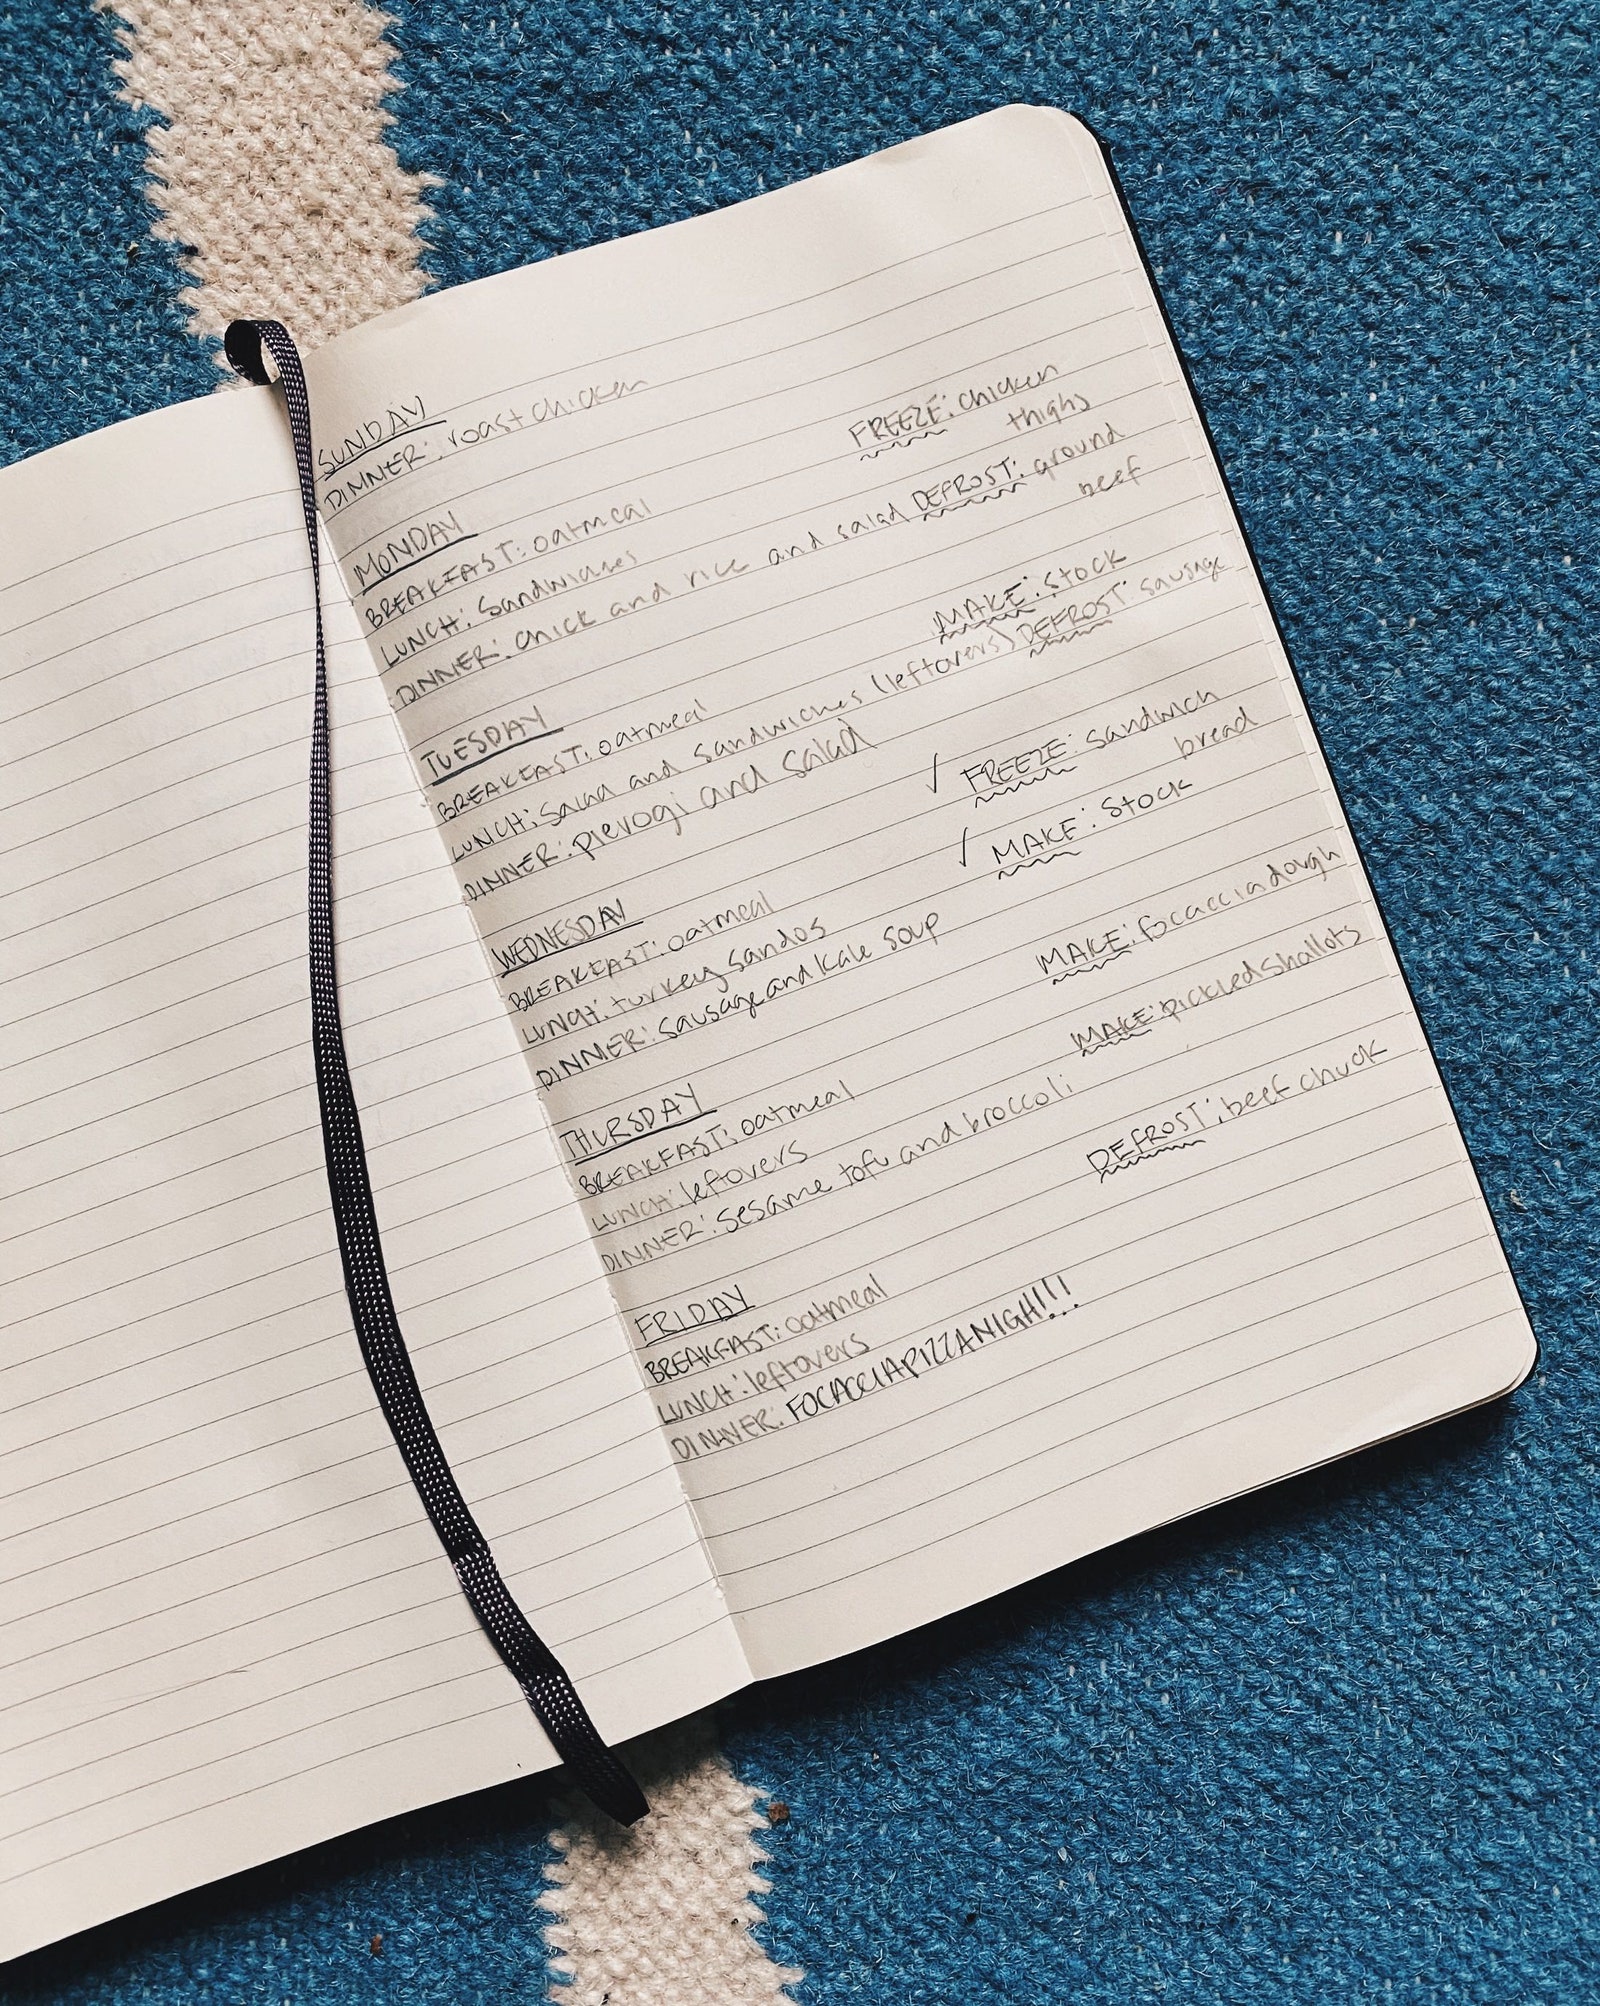 SUNDAY
DINNER: roast chicken
MONDAY
FREEZE: chicken
thighs
BREAKFAST: oatmeal
LUNCH: Sandwiches
DINNER: chick and rice and salad DEFROST: ground
beef
TUESDAY
MAKE: stock
BREAKFAST: oatmeal
LUNCH: Salad and sandwiches (leftovers) DEFROST: sausage
DINNER: pierogi and salad
WEDNESDAY
✓ FREEZE: sandwich
bread
BREAKFAST: oatmeal
✓ MAKE: stock
LUNCH: turkey sandos
DINNER: sausage and kale soup
THURSDAY
MAKE: focaccia dough
BREAKFAST: oatmeal
MAKE: pickled shallots
LUNCH: leftovers
DINNER: sesame tofu and broccoli
FRIDAY
DEFROST: beef chuck
BREAKFAST: oatmeal
LUNCH: leftovers
DINNER: FOCACCIA PIZZA NIGH!!!